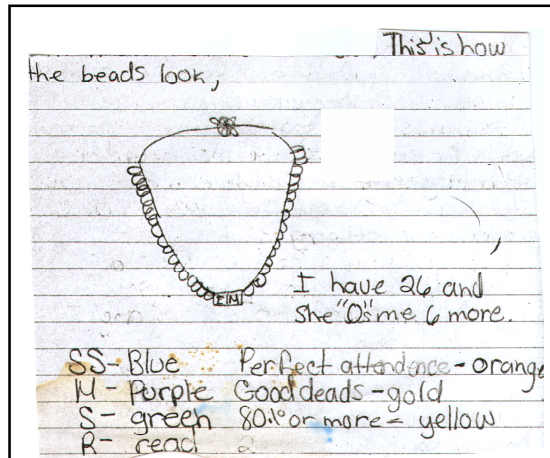 This is how
the beads look,
I M
I have 26 and
she "O's" me 6 more.
SS - Blue Perfect attendence - orange
M - Purple Good deads - gold
S - green 80% or more - yellow
R - read